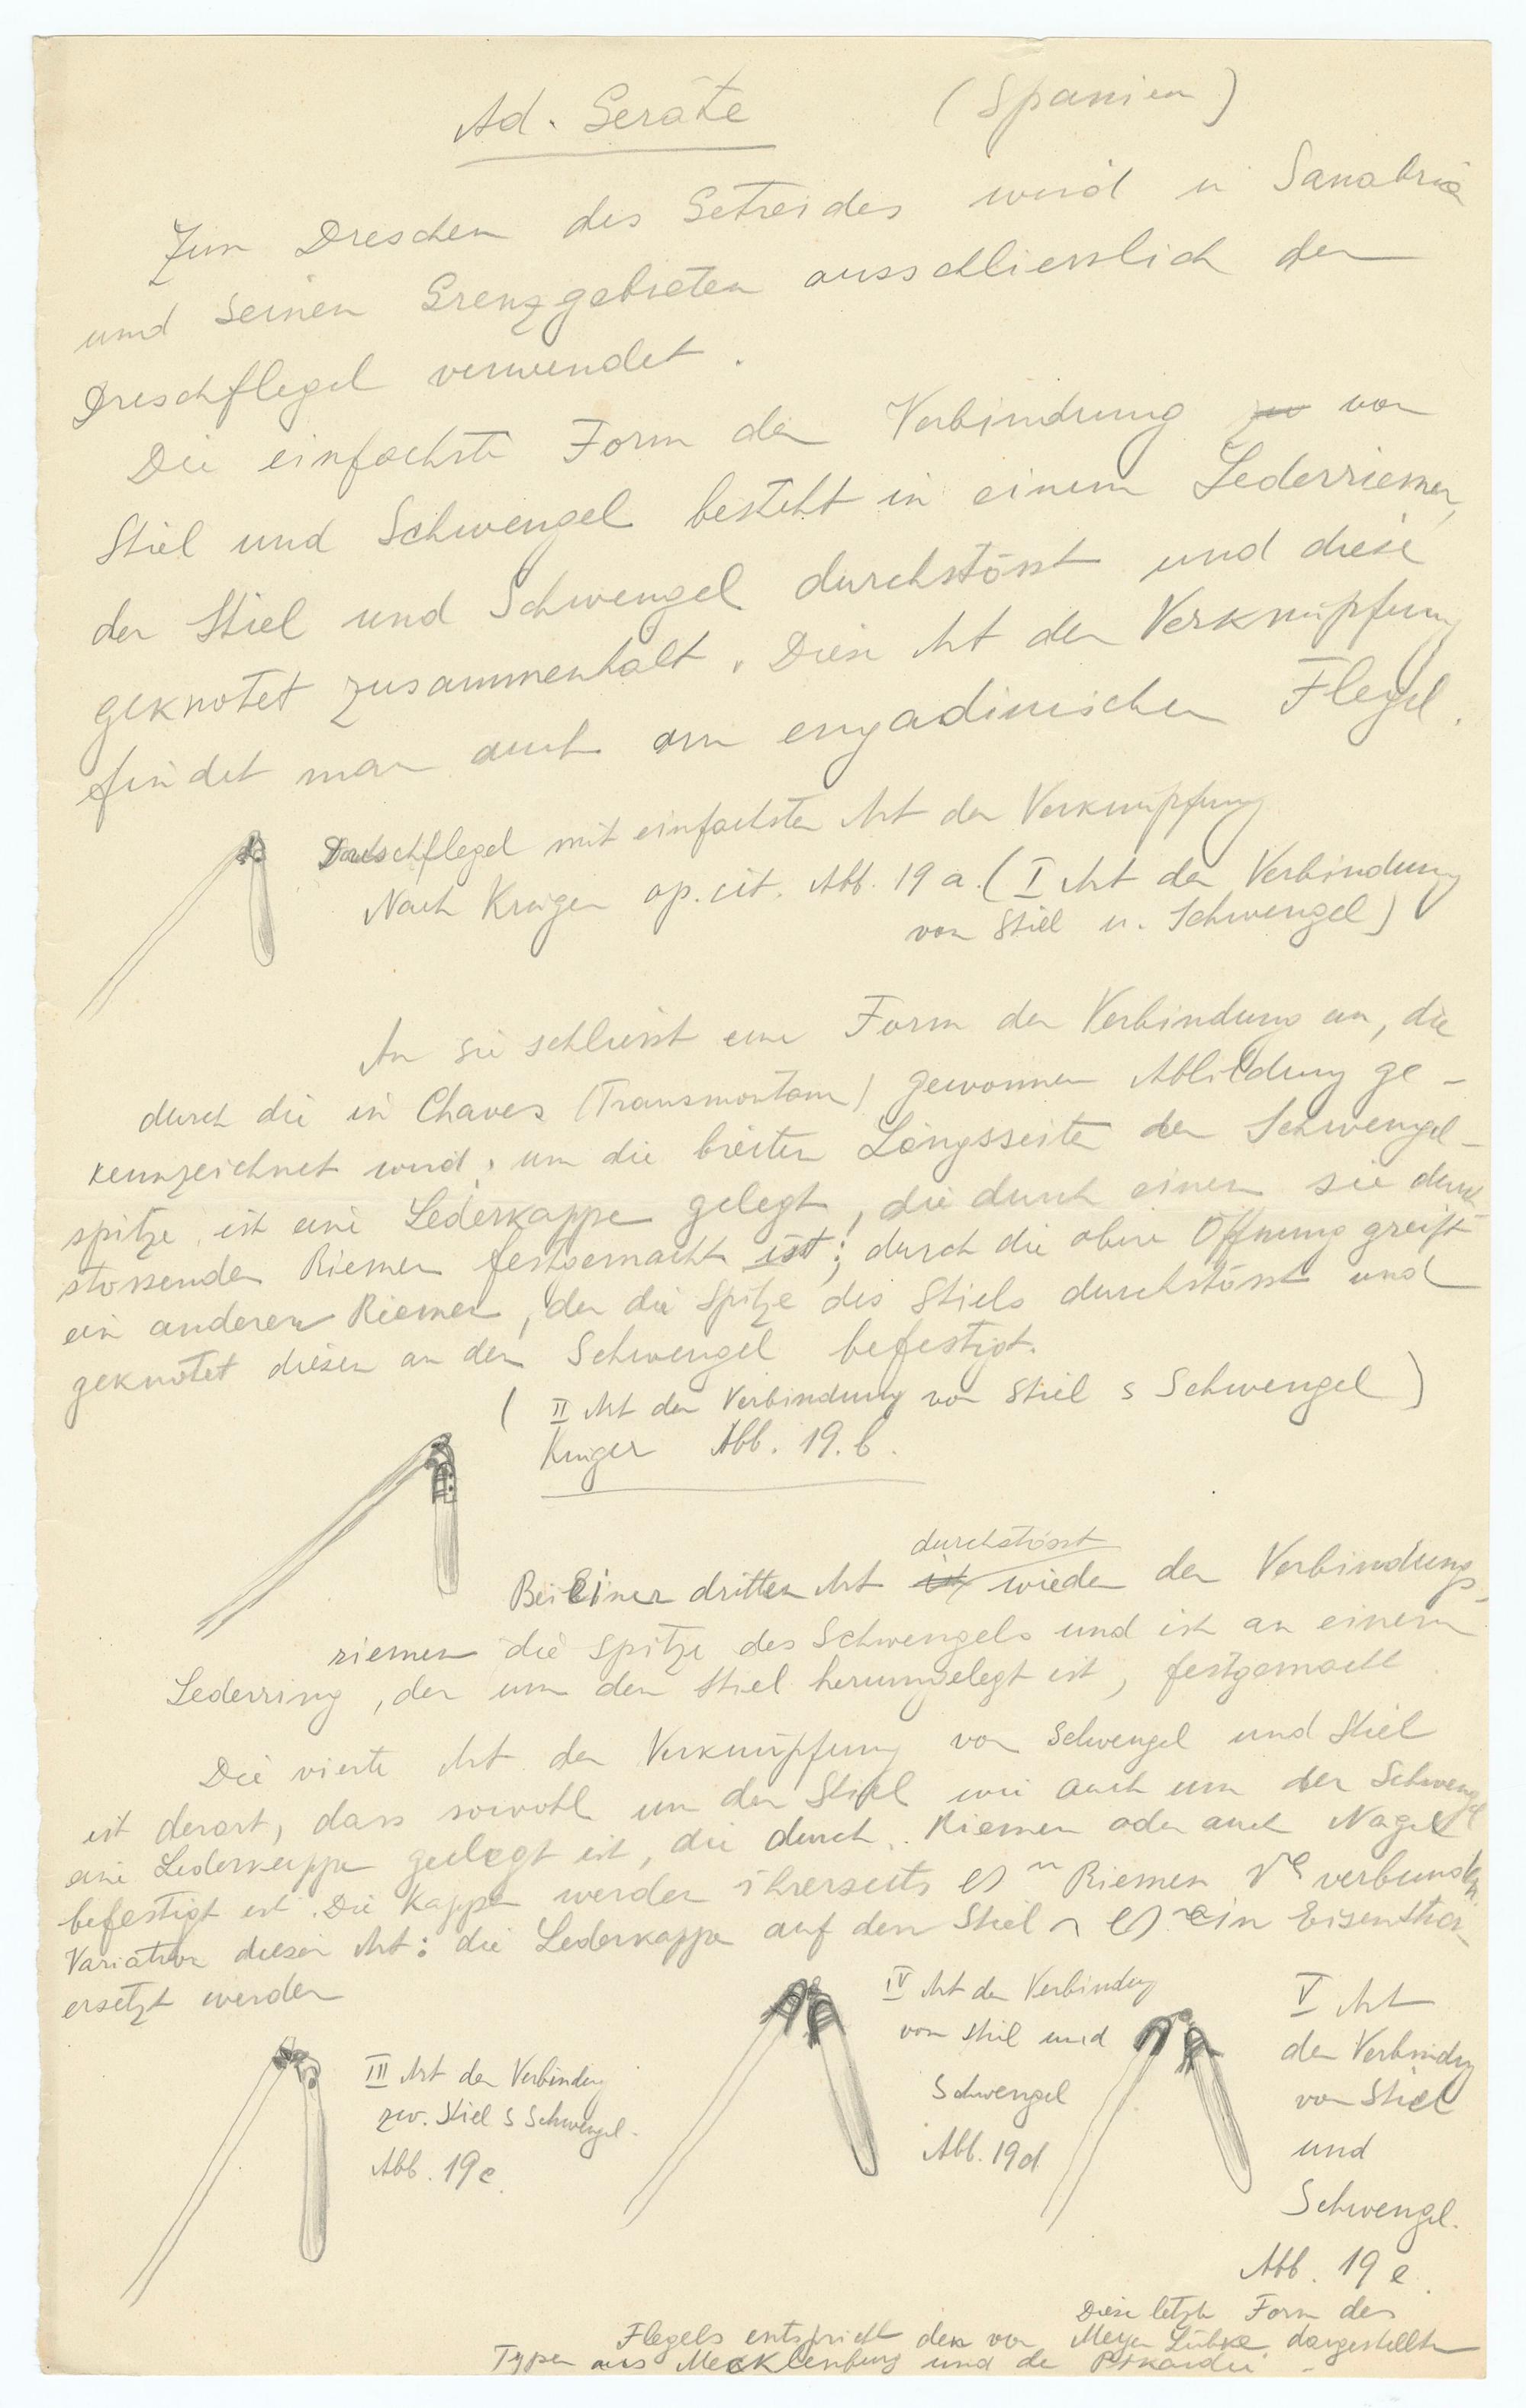 Ad. Geräte (Spanien)
Zum Dreschen des Getreides wird in Sanabria
und seinen Grenzgebieten ausschliesslich der
Dreschflegel verwendet.
Die einfachste Form der Verbindung von
Stiel und Schwengel besteht in einem Lederriemen,
der Stiel und Schwengel durchstösst und diese
geknotet zusammenhält. Diese Art der Verknüpfung
findet man auch am engadinischen Flegel.
Dreschflegel mit einfachster Art der Verknüpfung
Nach Krüger op. cit. Abb. 19 a. (I Art der Verbindung
von Stiel u. Schwengel)
An sie schliesst eine Form der Verbindung an, die
durch die in Chaves (Transmontan) gewonnene Abbildung ge-
kennzeichnet wird; um die breiten Längsseite der Schwengel-
spitze ist eine Lederkappe gelegt, die durch einen sie durch-
stossenden Riemen festgemacht ist; durch die obere Öffnung greift
ein anderer Riemen, der die Spitze des Stiels durchstösst und
geknotet diesen an den Schwengel befestigt.
(II Art der Verbindung von Stiel s Schwengel)
Krüger Abb. 19. b.
durchstösst
Bei Einer dritten Art ist wieder der Verbindungs-
riemen die Spitze des Schwengels und ist an einem
Lederring, der um den Stiel herumgelegt ist, festgemacht
Die vierte Art der Verknüpfung von Schwengel und Stiel
ist derart, dass sowohl um den Stiel wie auch um den Schwengel
eine Lederkappe gelegt ist, die durch Riemen oder auch Nägel
befestigt ist. Die Kappen werden ihrerseits Riemen verbunden
Variation dieser Art: die Lederkappe auf dem Stiel ein Eisen
ersetzt werden
III Art der Verbindung
zw. Stiel s Schwengel.
Abb. 19 c.
IV Art der Verbindung
von Stiel und
Schwengel
Abb. 19d
V Art
der Verbindung
von Stiel
und
Schwengel.
Abb. 19 e.
Diese letzte Form des
Flegels entspricht den von Meyer Lübke dargestellten
Typen aus Mecklenburg und der Pikardie.-